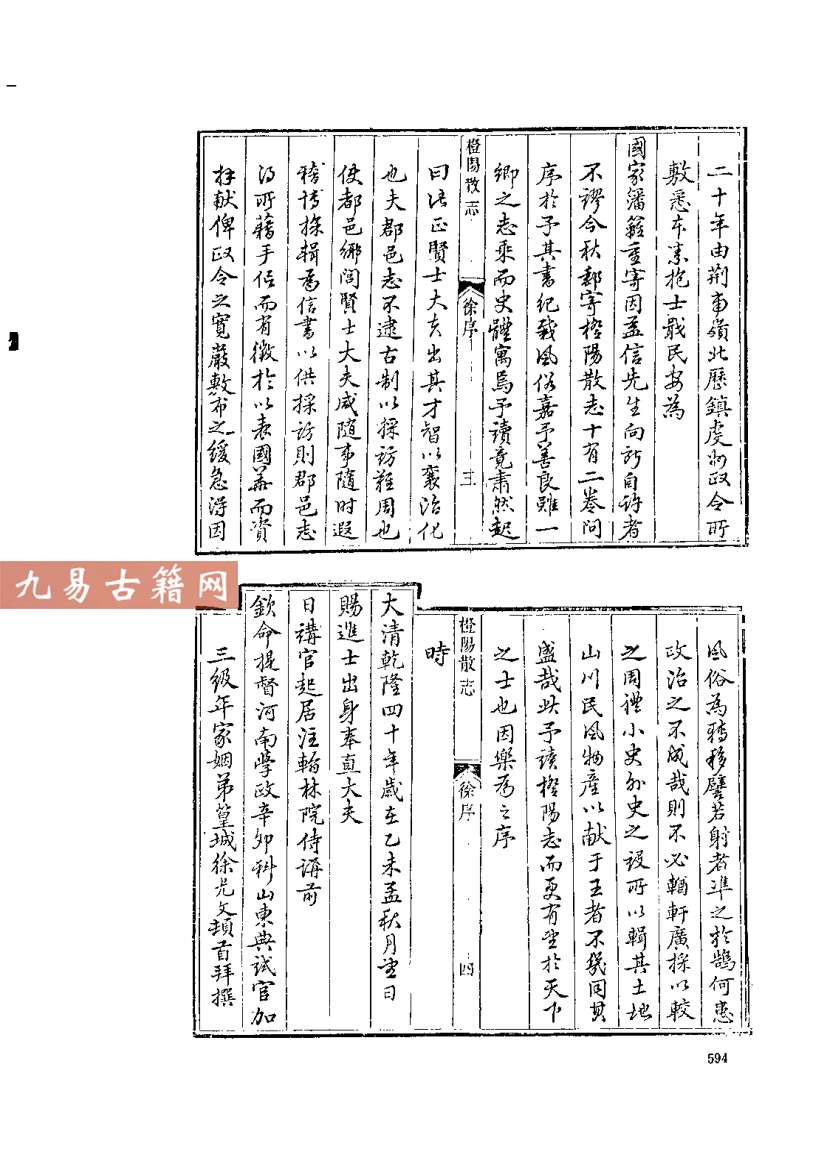 二十年由荆南嶺北歷鎮虔州政令所
敷悉本素抱士戢民安為
國家藩籬重寄因益信先生向所自許者
不謬今秋郵寄橙陽散志十有二卷問
序於予其書紀載風俗嘉予善良雖一
鄉之志乘而史體寓焉予讀竟肅然起
橙陽散志
徐序
三
曰治正賢士大夫出其才智以襄治化
也夫郡邑志不逮古制以採訪難周也
使都邑鄉閭賢士大夫咸隨事隨時遐
稽博採輯為信書以供採訪則郡邑志
得所藉手信而有徵於以表國華而資
拜献俾政令之寛嚴敷布之緩急得因
九易古籍网
風俗為轉移譬若射者凖之於鵠何患
政治之不成哉則不必輶軒廣採以較
之周禮小史外史之設所以輯其土地
山川民風物產以献于王者不幾同其
盛哉此予讀橙陽志而更有望於天下
之士也因樂為之序
橙陽散志
徐序
四
時
大清乾隆四十年歲在乙未孟秋月望日
賜進士出身奉直大夫
日講官起居注翰林院侍講前
欽命提督河南學政辛夘科山東典試官加
三級年家姻弟篁城徐光文頓首拜撰
594